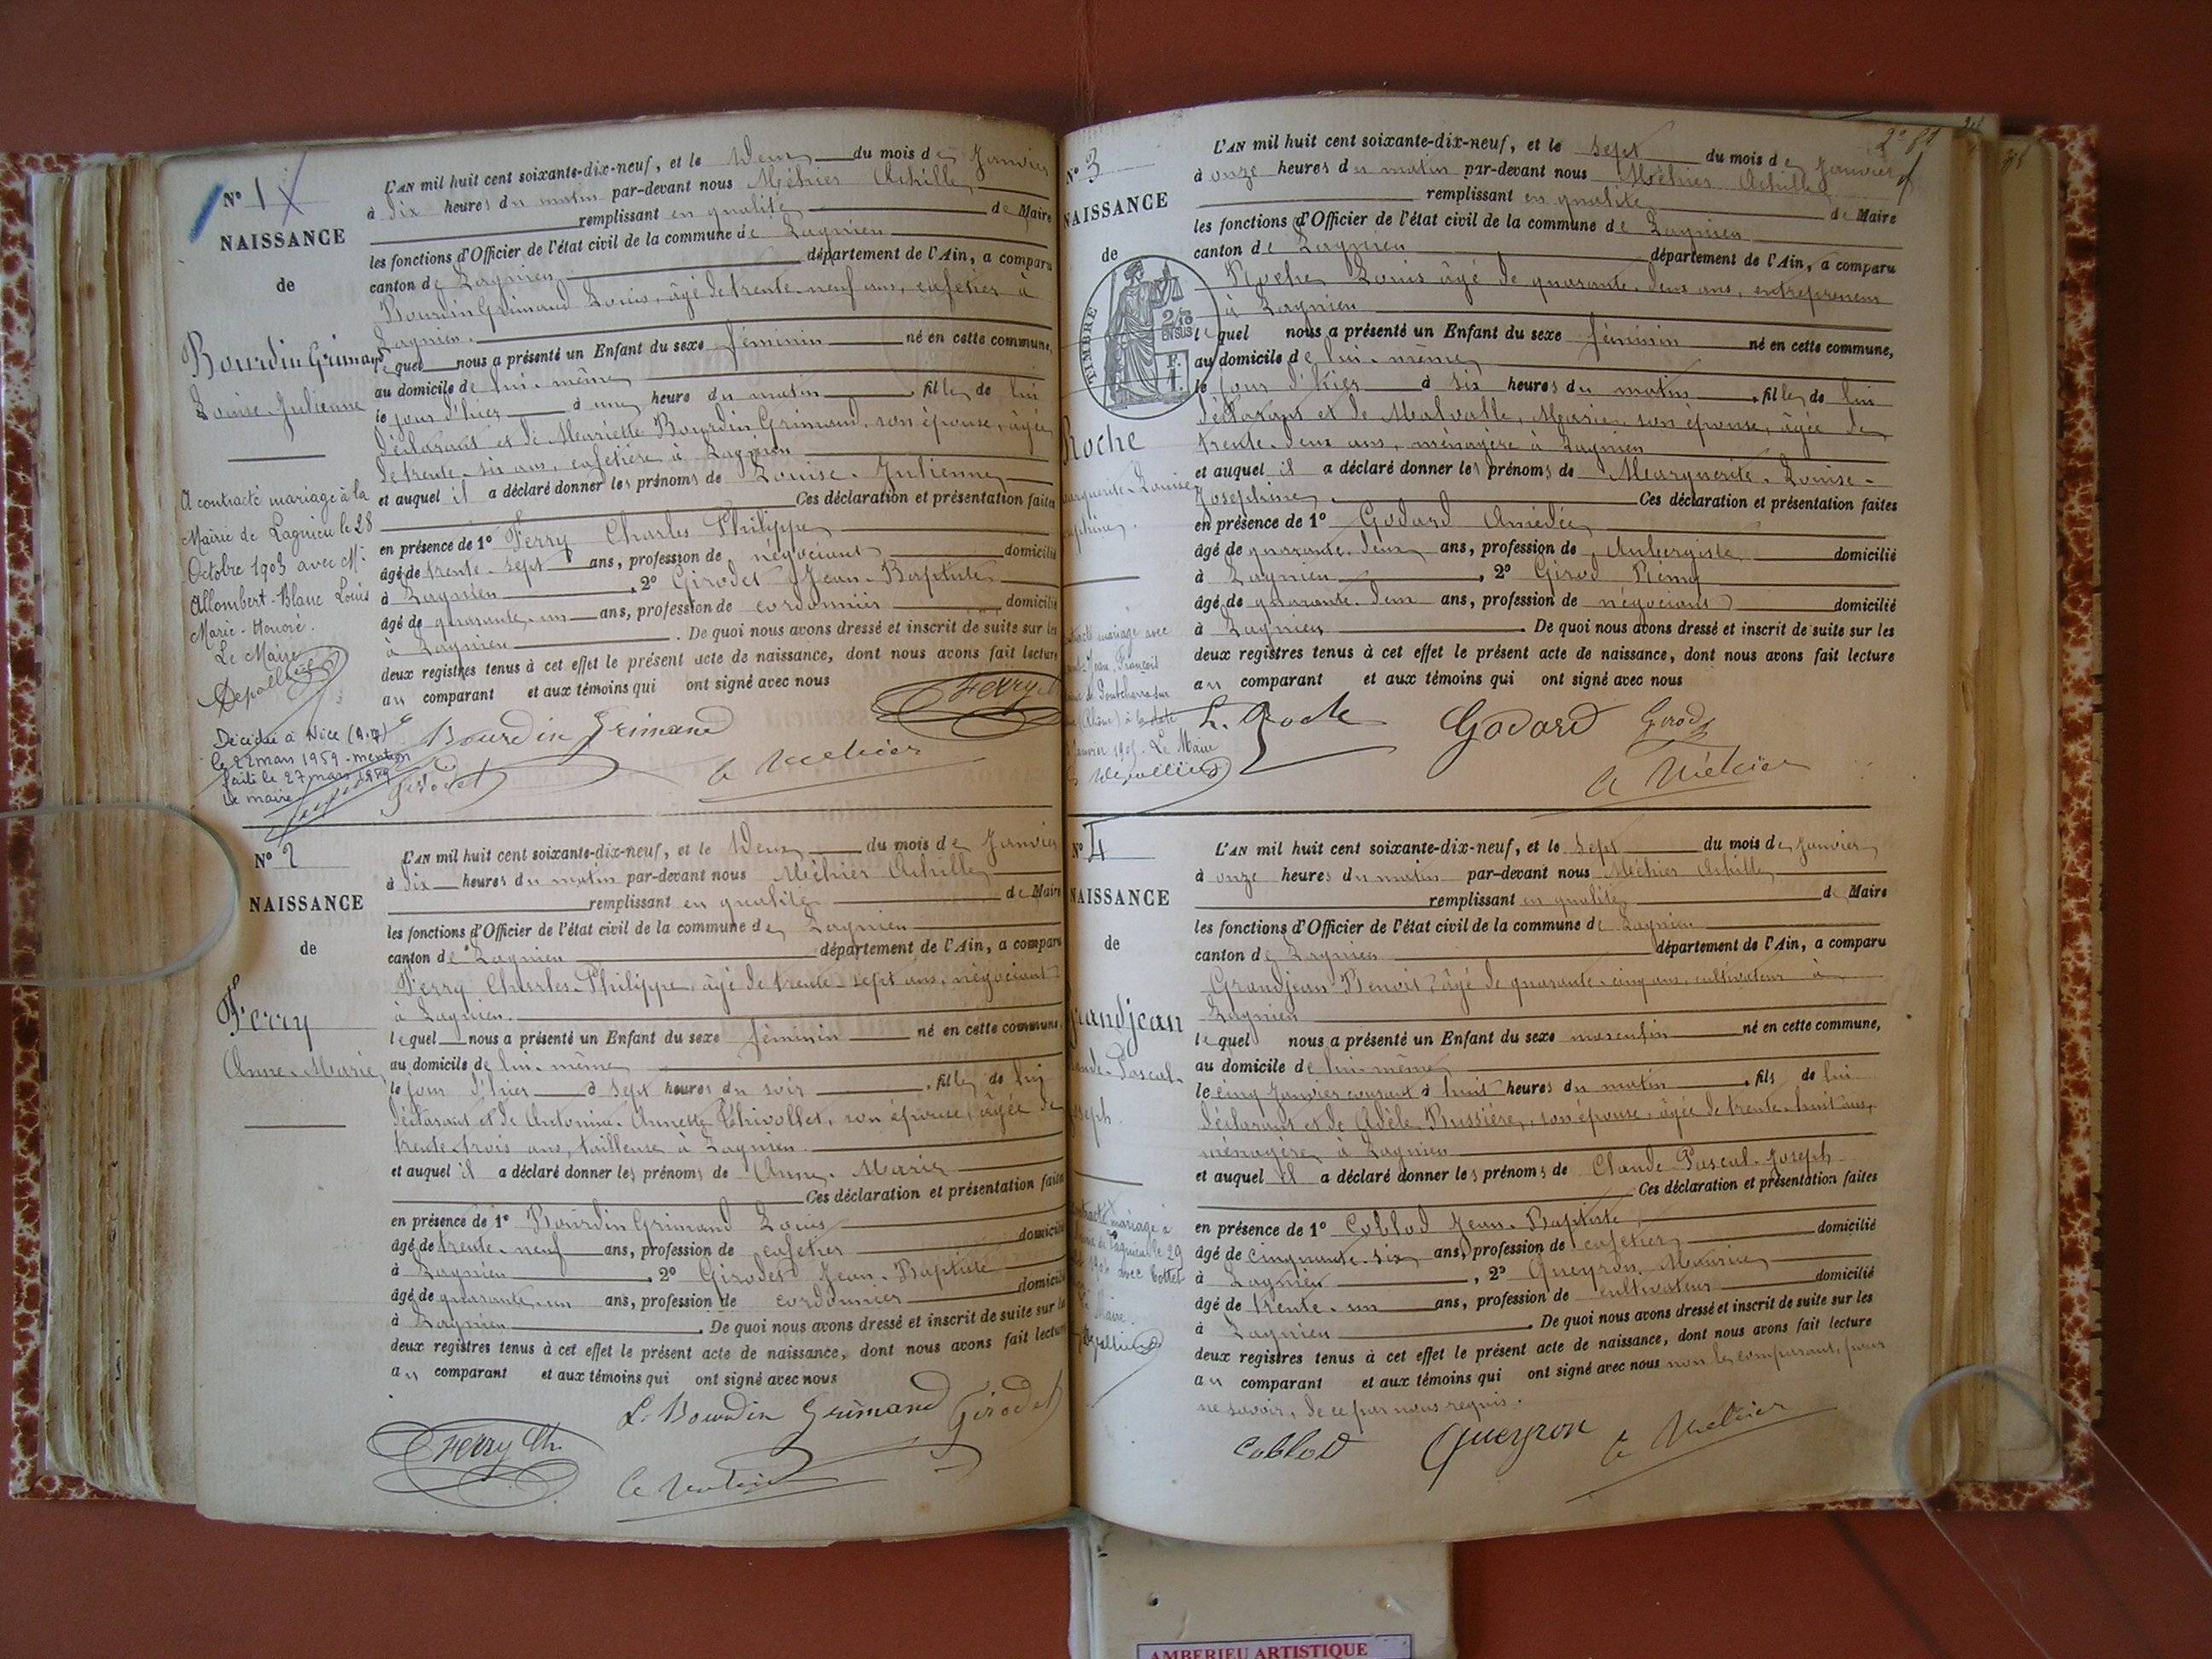 Nº 1
NAISSANCE
de
Bourdin Grimaud
Louise-Julienne
A contracté mariage à la
Mairie de Lagnieu le 28
Octobre 1903 avec Mr
Allombert-Blanc Louis
Marie-Honoré.
Le Maire
Depollier
Décédée à Nice (A.M)
le 22 mars 1959 - mention
faite le 27 mars 1959
Le maire
L'AN mil huit cent soixante-dix-neuf, et le deux du mois de Janvier
à dix heures du matin par-devant nous Méhier Achille
remplissant en qualité de Maire
les fonctions d'Officier de l'état civil de la commune de Lagnieu
canton de Lagnieu département de l'Ain, a comparu
Bourdin Grimaud Louis, âgé de trente-neuf ans, cafetier à
Lagnieu.
lequel nous a présenté un Enfant du sexe féminin né en cette commune,
au domicile de lui-même
le jour d'hier à une heure du matin, fille de lui
déclarant et de Mariette Bourdin Grimaud, son épouse, âgée
de trente-six ans, cafetière à Lagnieu
et auquel il a déclaré donner les prénoms de Louise-Julienne
Ces déclaration et présentation faites
en présence de 1º Ferry Charles Philippe
âgé de trente-sept ans, profession de négociant domicilié
à Lagnieu, 2º Girodet Jean-Baptiste
âgé de quarante-un ans, profession de cordonnier domicilié
à Lagnieu. De quoi nous avons dressé et inscrit de suite sur les
deux registres tenus à cet effet le présent acte de naissance, dont nous avons fait lecture
au comparant et aux témoins qui ont signé avec nous
Ferry
Bourdin Grimaud
Girodet
A Méhier
Nº 2
NAISSANCE
de
Ferry
Anne-Marie
L'AN mil huit cent soixante-dix-neuf, et le deux du mois de Janvier
à dix heures du matin par-devant nous Méhier Achille
remplissant en qualité de Maire
les fonctions d'Officier de l'état civil de la commune de Lagnieu
canton de Lagnieu département de l'Ain, a comparu
Ferry Charles-Philippe, âgé de trente-sept ans, négociant
à Lagnieu.
lequel nous a présenté un Enfant du sexe féminin né en cette commune,
au domicile de lui-même
le jour d'hier à sept heures du soir, fille de lui
déclarant et de Antonine-Annette Chivollet, son épouse, âgée de
trente-trois ans, tailleuse à Lagnieu.
et auquel il a déclaré donner les prénoms de Anne-Marie
Ces déclaration et présentation faites
en présence de 1º Bourdin Grimaud Louis
âgé de trente-neuf ans, profession de cafetier domicilié
à Lagnieu, 2º Girodet Jean-Baptiste
âgé de quarante-un ans, profession de cordonnier domicilié
à Lagnieu. De quoi nous avons dressé et inscrit de suite sur les
deux registres tenus à cet effet le présent acte de naissance, dont nous avons fait lecture
au comparant et aux témoins qui ont signé avec nous
L. Bourdin Grimaud Girodet
Ferry Ch.
A Méhier
Nº 3
NAISSANCE
de
TIMBRE
2/10
EN SUS
F.
1.
Roche
Marguerite-Louise
Joséphine.
mariage avec
Jean François
de Pontcharra sur
(Rhône) à la date
Janvier 190 . Le Maire
Depollier
L'AN mil huit cent soixante-dix-neuf, et le sept du mois de Janvier
à onze heures du matin par-devant nous Méhier Achille
remplissant en qualité de Maire
les fonctions d'Officier de l'état civil de la commune de Lagnieu
canton de Lagnieu département de l'Ain, a comparu
Roche Louis âgé de quarante-deux ans, entrepreneur
à Lagnieu
lequel nous a présenté un Enfant du sexe féminin né en cette commune,
au domicile de lui-même
le jour d'hier à six heures du matin, fille de lui
déclarant et de Malvalle, Marie, son épouse, âgée de
trente-deux ans, ménagère à Lagnieu
et auquel il a déclaré donner les prénoms de Marguerite-Louise-
Joséphine. Ces déclaration et présentation faites
en présence de 1º Godard Amédée
âgé de quarante-deux ans, profession de Aubergiste domicilié
à Lagnieu, 2º Girod Rémy
âgé de quarante-deux ans, profession de négociant domicilié
à Lagnieu. De quoi nous avons dressé et inscrit de suite sur les
deux registres tenus à cet effet le présent acte de naissance, dont nous avons fait lecture
au comparant et aux témoins qui ont signé avec nous
L. Roche Godard Girod
A Méhier
Nº 4
NAISSANCE
de
Grandjean
Claude-Pascal-
Joseph.
contracté mariage à
Lagnieu le 29
avec Cottet
Maire.
Depollier
L'AN mil huit cent soixante-dix-neuf, et le sept du mois de Janvier
à onze heures du matin par-devant nous Méhier Achille
remplissant en qualité de Maire
les fonctions d'Officier de l'état civil de la commune de Lagnieu
canton de Lagnieu département de l'Ain, a comparu
Grandjean Benoit, âgé de quarante-cinq ans, cultivateur à
Lagnieu
lequel nous a présenté un Enfant du sexe masculin né en cette commune,
au domicile de lui-même
le cinq Janvier courant à huit heures du matin, fils de lui
déclarant et de Adèle Bussière, son épouse, âgée de trente-huit ans,
ménagère à Lagnieu
et auquel il a déclaré donner les prénoms de Claude-Pascal-Joseph
Ces déclaration et présentation faites
en présence de 1º Coblod Jean-Baptiste domicilié
âgé de cinquante-six ans, profession de cafetier
à Lagnieu, 2º Queyron Maurice
âgé de trente-un ans, profession de cultivateur domicilié
à Lagnieu. De quoi nous avons dressé et inscrit de suite sur les
deux registres tenus à cet effet le présent acte de naissance, dont nous avons fait lecture
au comparant et aux témoins qui ont signé avec nous non le comparant, pour
ne savoir, de ce par nous requis.
Coblod Queyron A Méhier
AMBERIEU ARTISTIQUE